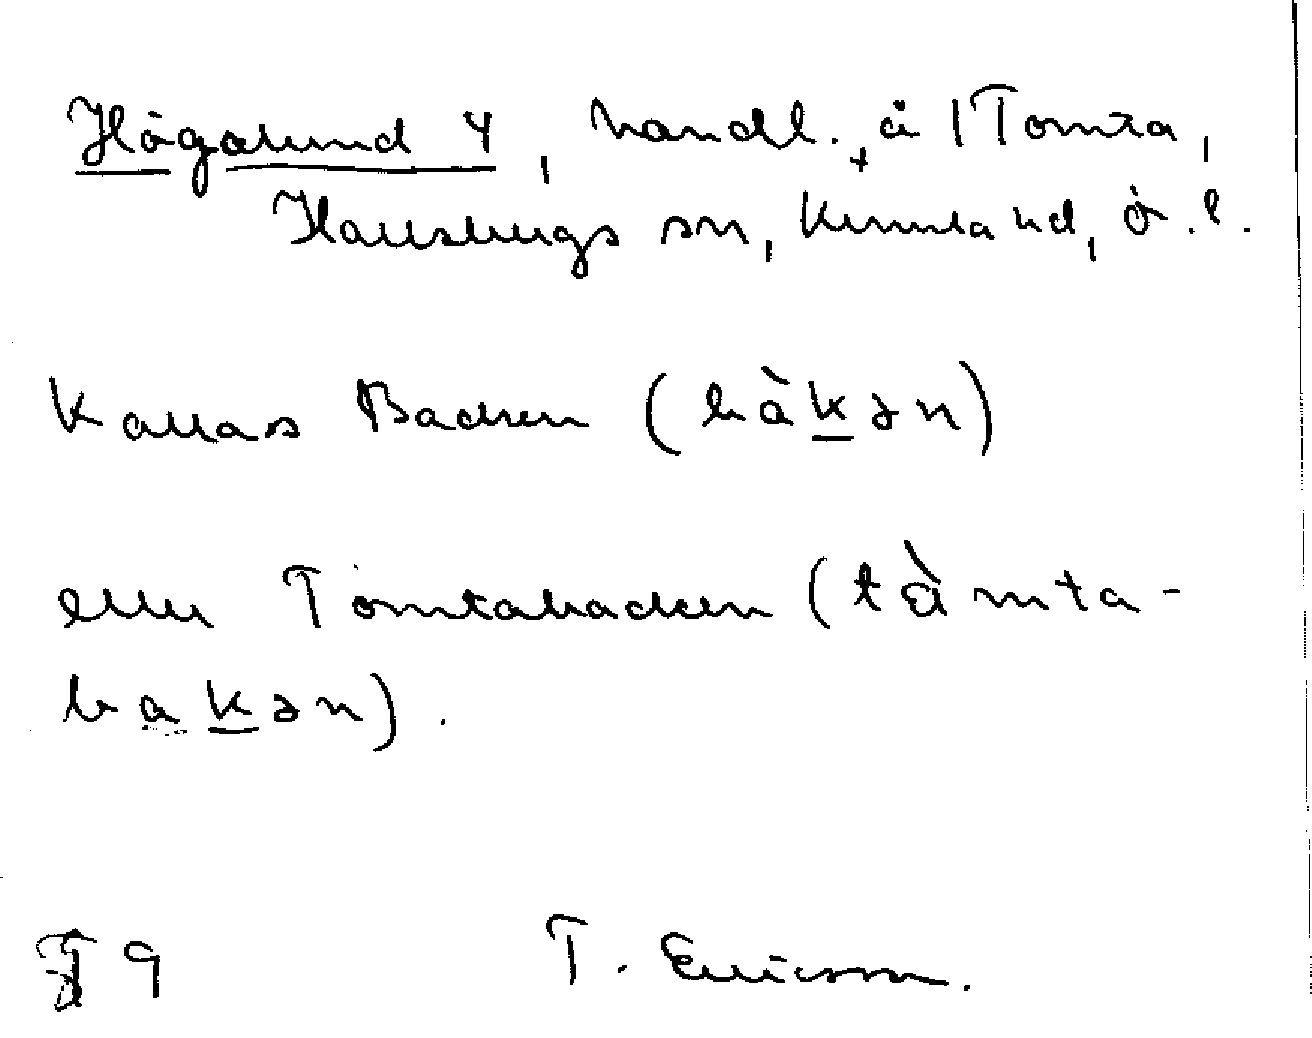 Högalund 4, handl. å 1 Tomta,
Hallsbergs sn, Kumla hd, ö. l.
Kallas Backen (bàkən)
eller Tomtabacken (tåmta-
bakən).
§ 9 T. Ericsson.